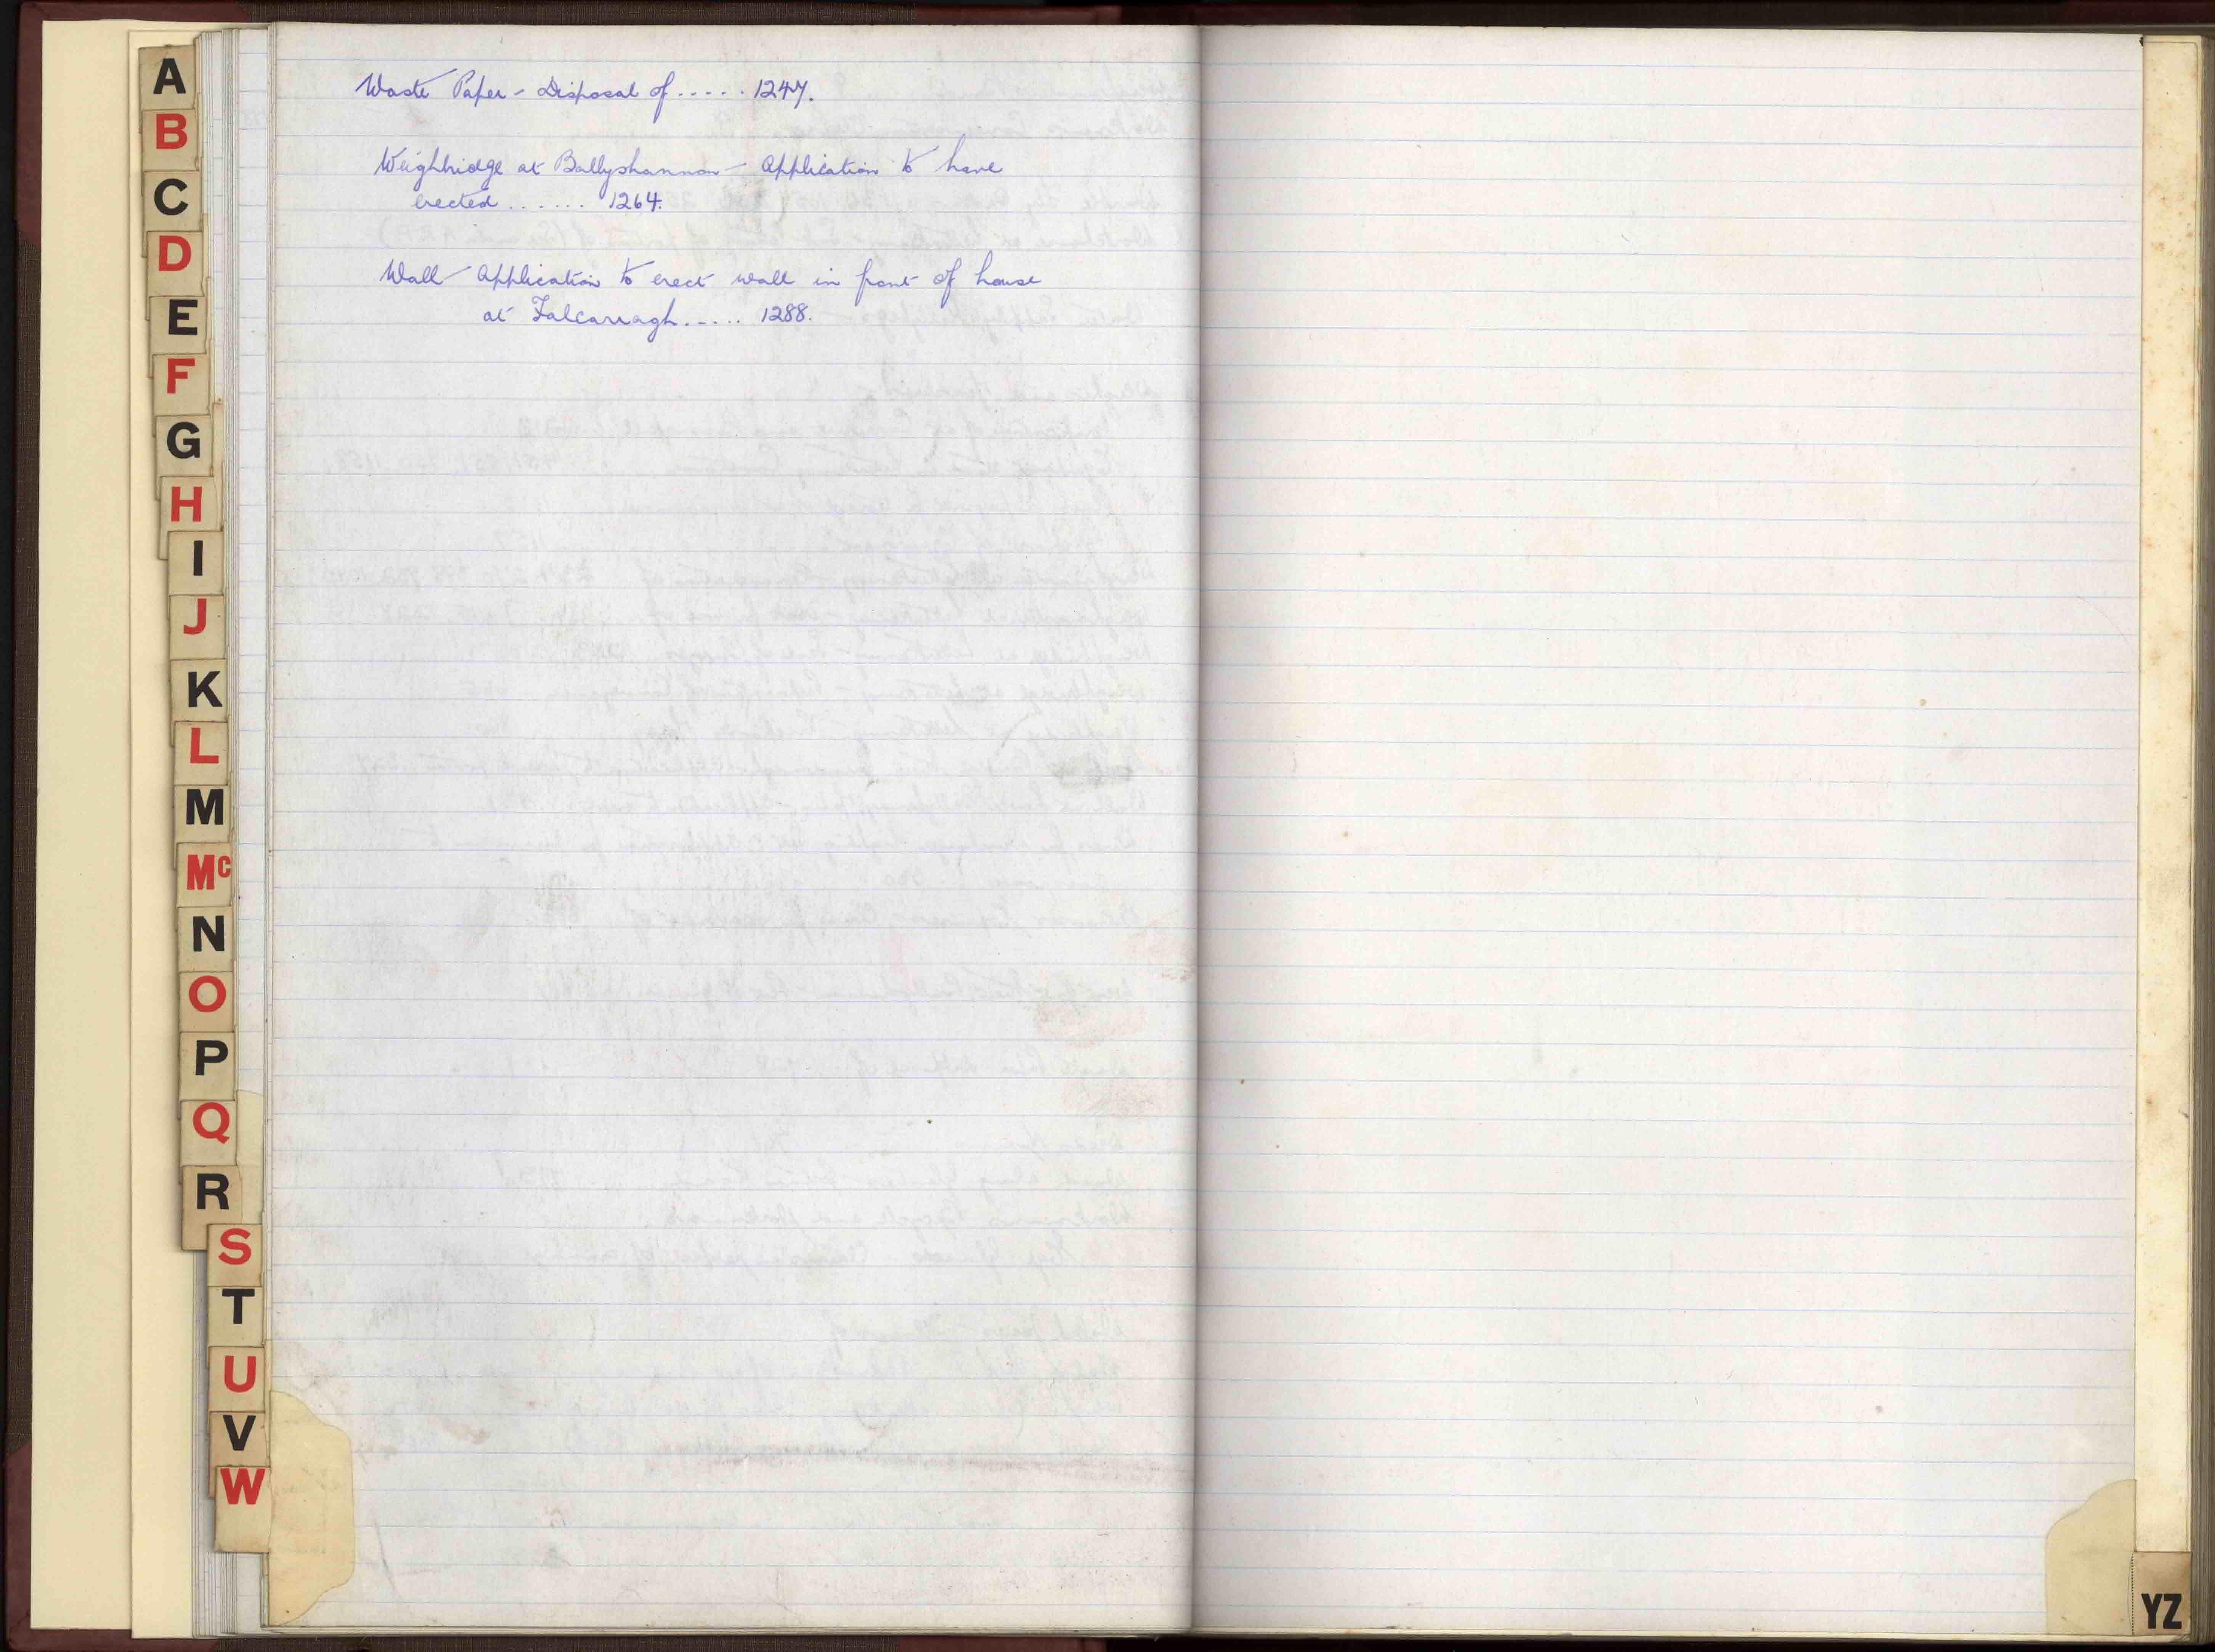 A
B
C
D
E
F
G
H
I
J
K
L
M
Mc
N
O
P
Q
R
S
T
U
V
W
Waste Paper - Disposal of ..... 1247.
Weighbridge at Ballyshannon - Application to have
erected ...... 1264.
Wall - Application to erect wall in front of house
at Falcarragh ..... 1288.
YZ